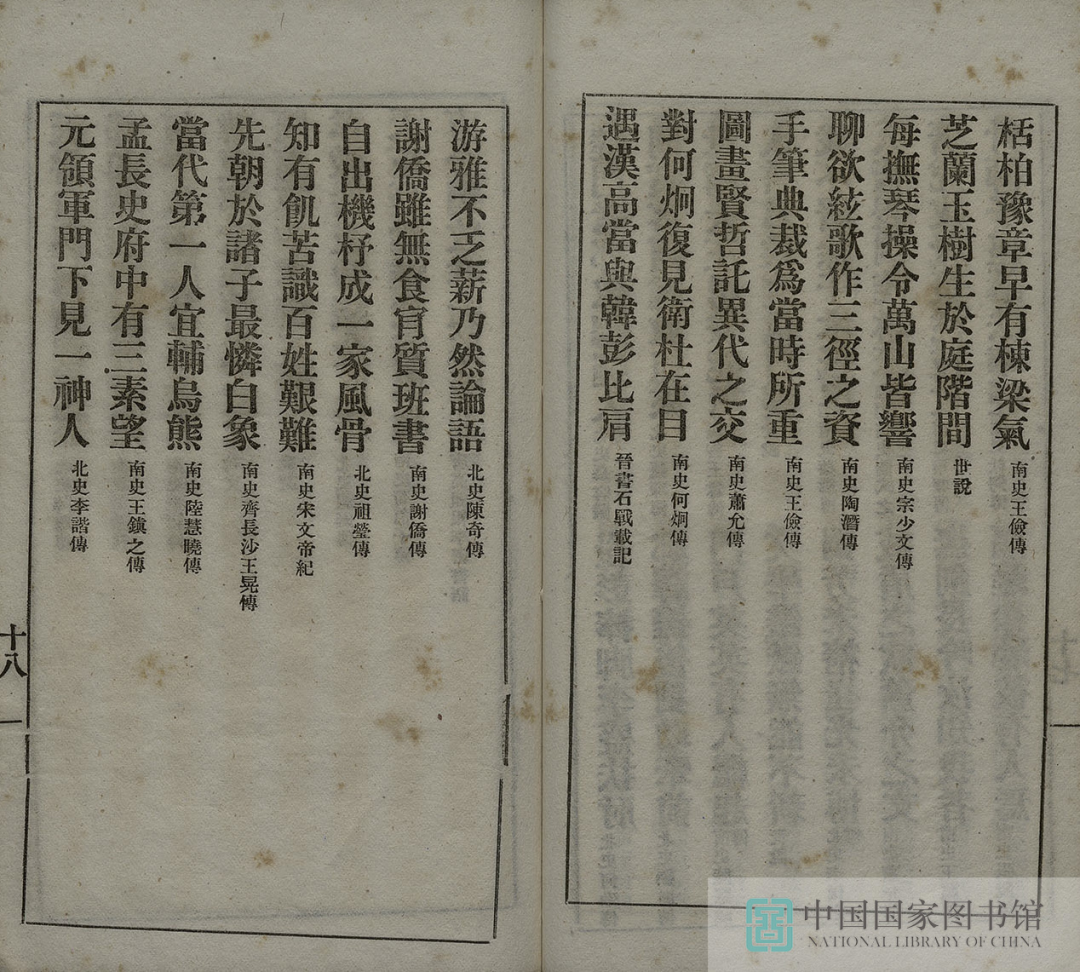 栝柏豫章早有棟梁氣 南史王儉傳
芝蘭玉樹生於庭階間 世說
每撫琴操令萬山皆響 南史宗少文傳
聊欲絃歌作三徑之資 南史陶潛傳
手筆典裁爲當時所重 南史王儉傳
圖畫賢哲託異代之交 南史蕭允傳
對何炯復見衛杜在目 南史何炯傳
遇漢高當與韓彭比肩 晉書石戰載記
游雅不乏薪乃然論語 北史陳奇傳
謝僑雖無食肯質班書 南史謝僑傳
自出機杼成一家風骨 北史祖瑩傳
知有飢苦識百姓艱難 南史宋文帝紀
先朝於諸子最憐白象 南史齊長沙王晃傳
當代第一人宜輔烏熊 南史陸慧曉傳
孟長史府中有三素望 南史王鎮之傳
元領軍門下見一神人 北史李諧傳
十八
中国国家图书馆
NATIONAL LIBRARY OF CHINA